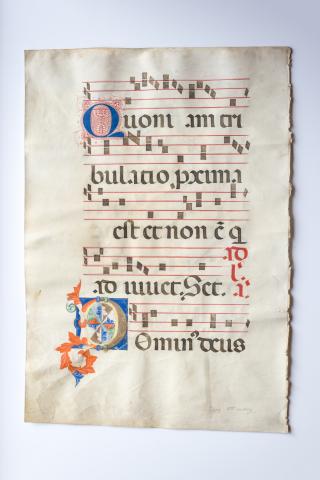 Quoni am tri
bulatio, pxima
est et non ē q
ad
ad iuvet, Sct.
Omin⁹ deus